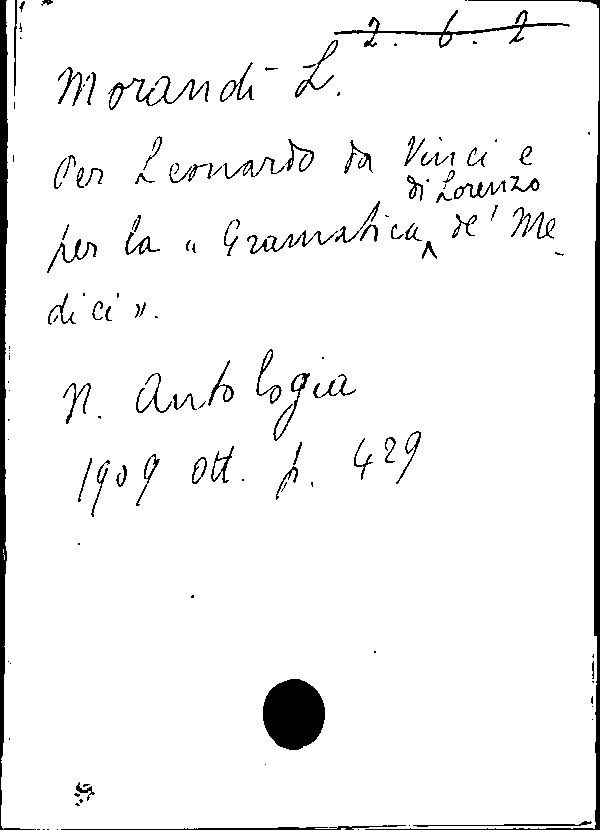 2. 6. 2
Morandi L.
Per Leonardo da Vinci e
di Lorenzo
per la "Gramatica ^ de' Me-
dici".
N. Antologia
1909 ott. p. 429